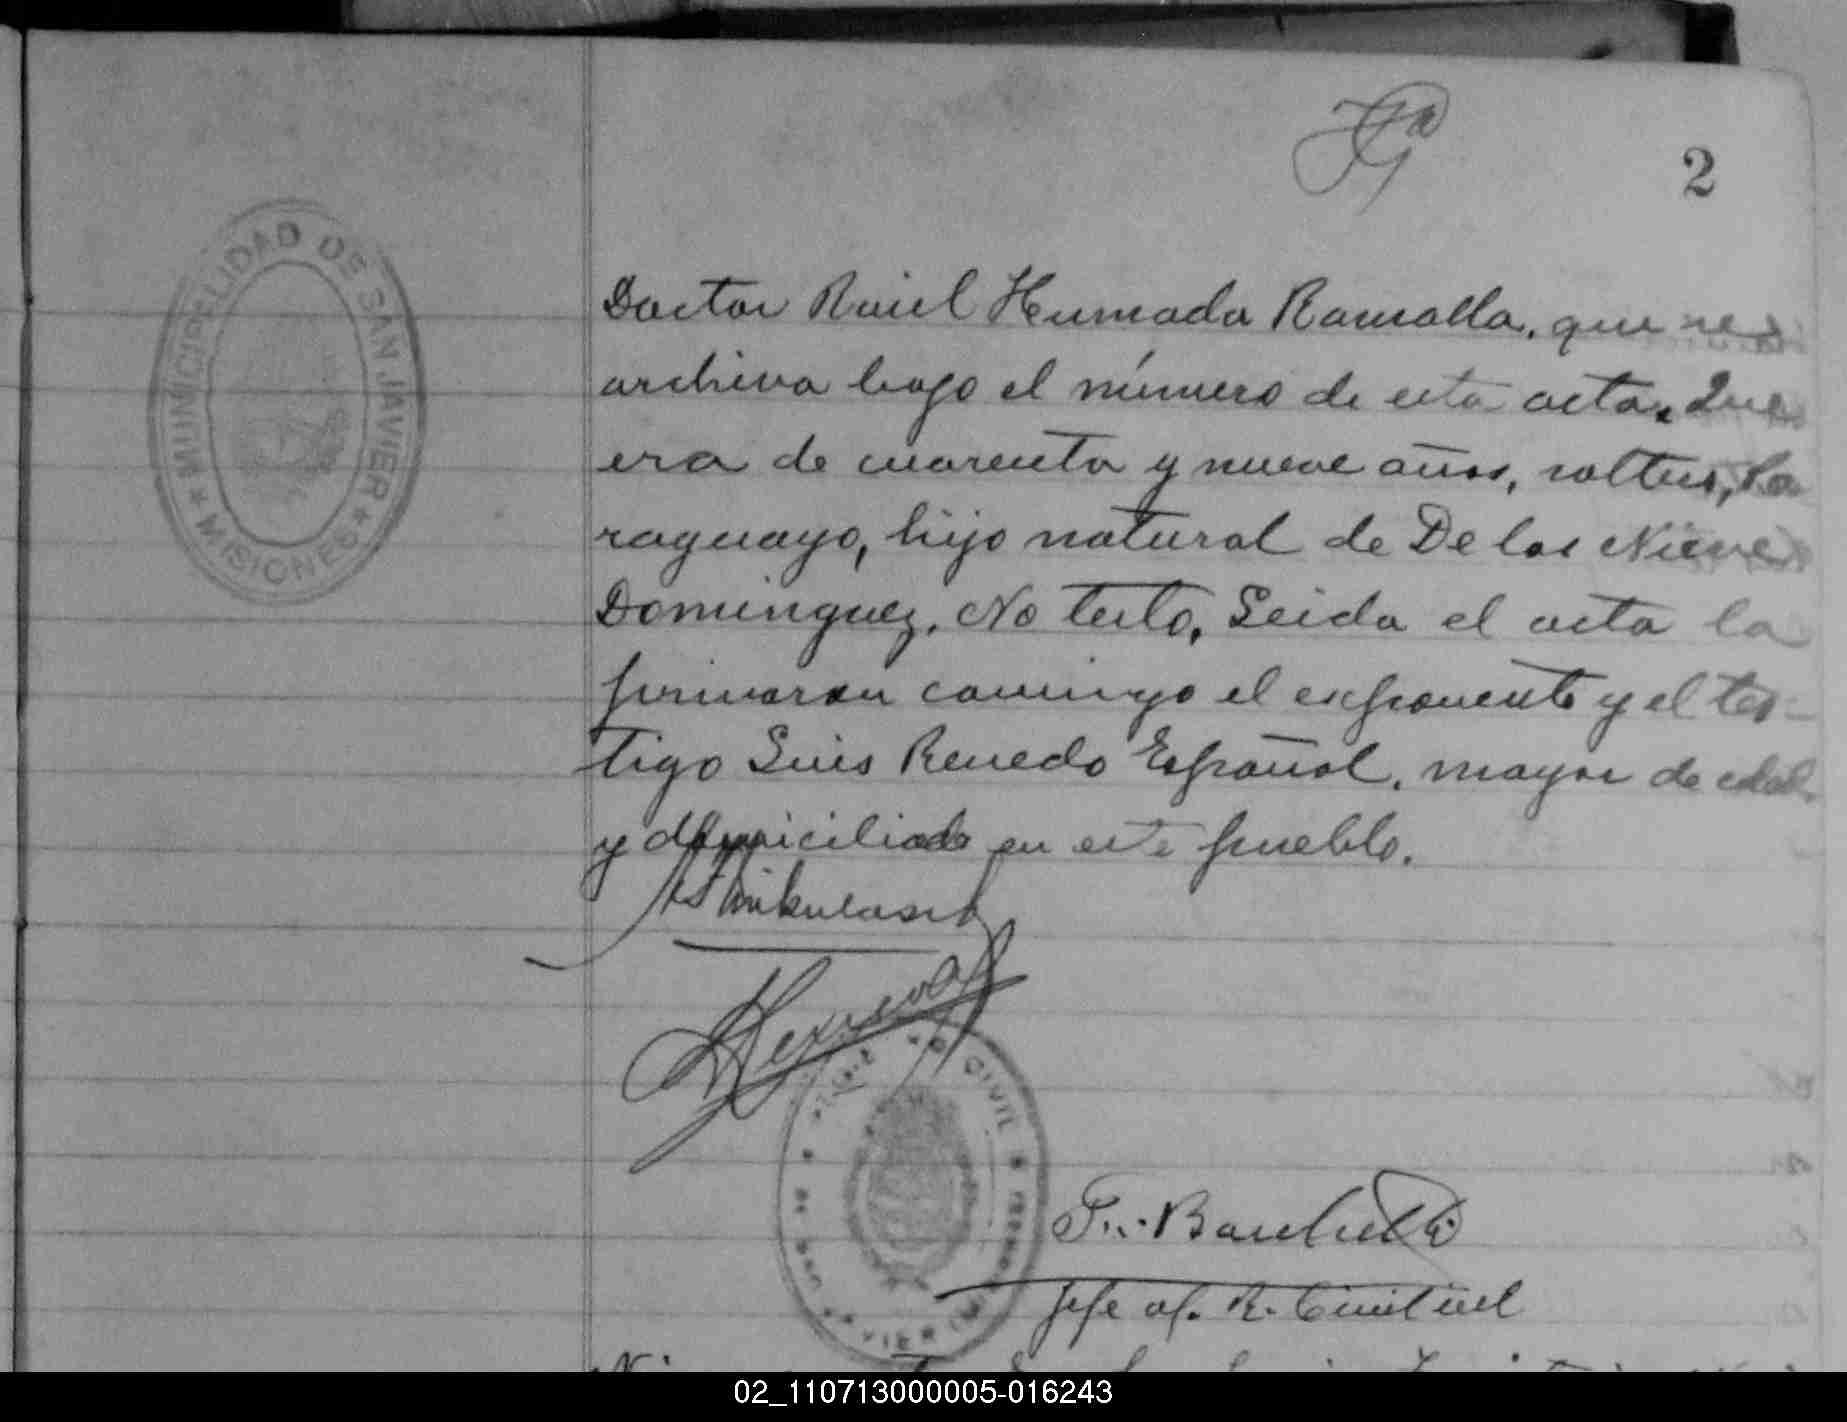 2
MUNICIPALIDAD DE SAN JAVIER
★ MISIONES ★
Doctor Raúl Humada Ramalla, que se
archiva bajo el número de esta acta. Que
era de cuarenta y nueve años, soltero, Pa
raguayo, hijo natural de De las Nieves
Dominguez. No testo. Leida el acta la
firmaron conmigo el exponente y el tes-
tigo Luis Renedo Español, mayor de edad
y domiciliado en este pueblo.
CIVIL
Jefe of. R. Civil
02_110713000005-016243